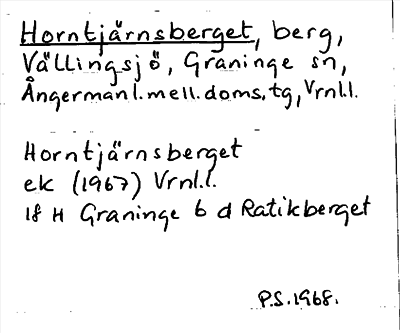 Horntjärnsberget, berg,
Vällingsjö, Graninge sn,
Ångermanl. mell. doms. tg, Vrnl.l.
Horntjärnsberget
ek (1967) Vrnl.l.
18 H Graninge 6 d Ratikberget
P.S. 1968.